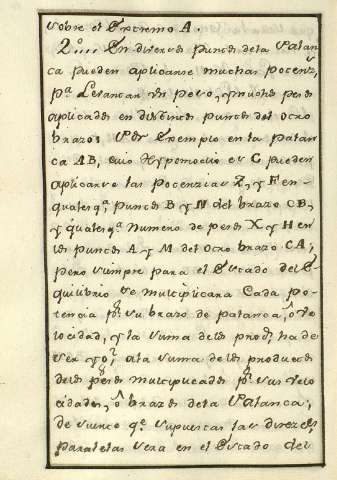 sobre el Extremo A.
2º... En diversos puncos dela Palan=
ca pueden aplicarse muchas pocencˢ,
pª Levancar un peso, y muchos pesos
aplicados en distincos puncos del ocro
brazo: Por Exemplo en la palan=
ca AB, cuio Hypomoclio es C pueden
aplicarse las pocencias Z, y F en=
qualesqª puncos B y N del brazo CB,
y qualesqª numero de pesos X y H en
los puncos A y M del ocro brazo CA;
pero siempre para el Estado del E=
quilibrio se multiplicara Cada po=
tencia pʳ su brazo de palanca, ô ve=
locidad, y la suma delos prodˢ ha de
ser ygˡ ala suma de los produccos
delos pesos multiplicados pʳ sus velo
cidades, ô brazos dela Palanca;
de suerce qᵉ supuescas las direccˢ
paralelas sera en el Estado del